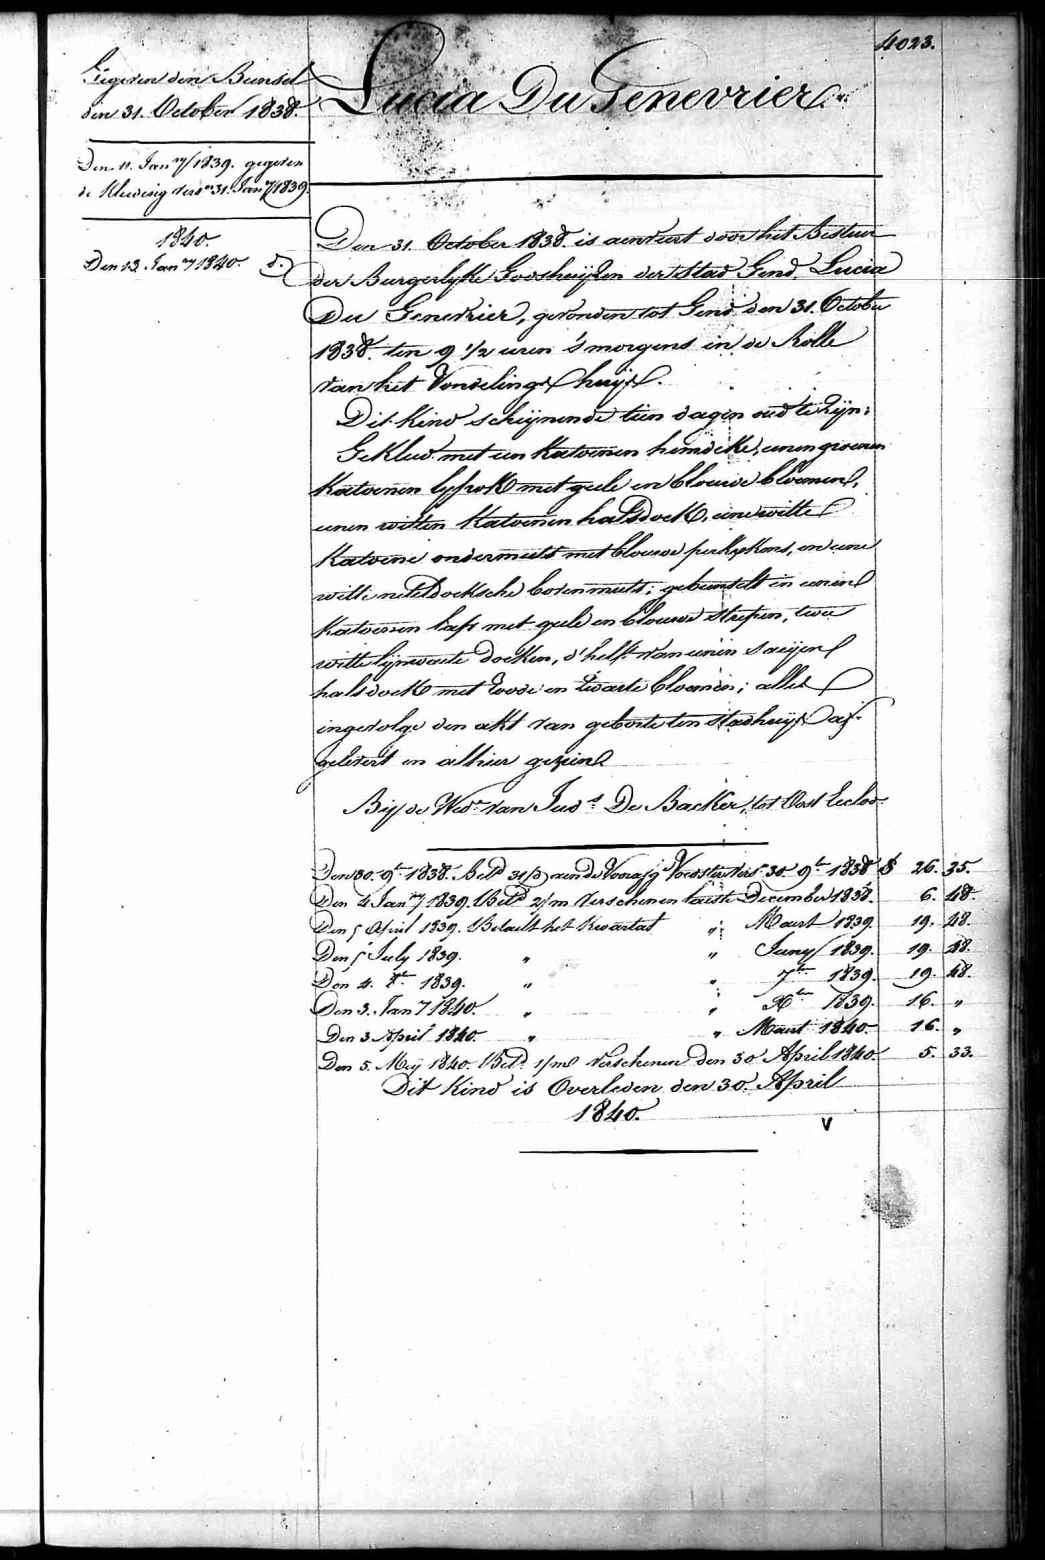 4023.
Gegeven den Bunsel
den 31. October 1838.
Den 11. Jan.ry 1839. gegeven
de Kleeding vers.n 31. Jan.ry 1839.
1840.
Den 13. Jan.ry 1840. d.o
Lucia Du Genevrier.
Den 31. October 1838. is aenveert door het Bestuer
der Burgerlyke Godshuijzen der Stad Gend, Lucia
Du Genevrier, gevonden tot Gend den 31. October
1838. ten 9 1/2 uren 's morgens in de Rolle
van het Vondelings huijs.
Dit kind scheijnende tien dagen oud te zijn;
Gekleed met een katoenen hemdeke, eenen groenen
katoenen lyfrok met geele en blouwe bloemen,
eenen witten katoenen halsdoek, eene witte
katoene ondermuts met blouwe perkskens, en eene
witte neteldoeksche bovenmuts; gebunselt in eenen
katoenen laps met geele en blouwe strepen, twee
witte lijnwaete doeken, d'helft van eenen saeijen
halsdoek met roode en zwarte bloemen; alles
ingevolge den akt van geborte ten stadhuijse af-
gelevert en alhier gezien
Bij de Wed.e van Jud.s De Backer, tot Oost Eecloo.
Den 30. 9.bre 1838. Bet.d aen de Voorsz. Voedster vers.n 30. 9.bre 1838 26. 35.
Den 4 Jan.ry 1839. Bet.d 2/m verschenen laeste December 1838. 6. 48.
Den 5 April 1839. Betaelt het Kwartael " Maert 1839. 19. 48.
Den 5 July 1839. " " Juny 1839. 19. 48.
Den 4. 8.bre 1839. " " 7.bre 1839. 19. 48.
Den 3. Jan.ry 1840. " " X.bre 1839. 16. "
Den 3 April 1840. " " Maert 1840. 16. "
Den 5. Meij 1840. Bet.d 1/m verschenen den 30 April 1840. 5. 33.
Dit kind is Overleden den 30. April
1840.
V